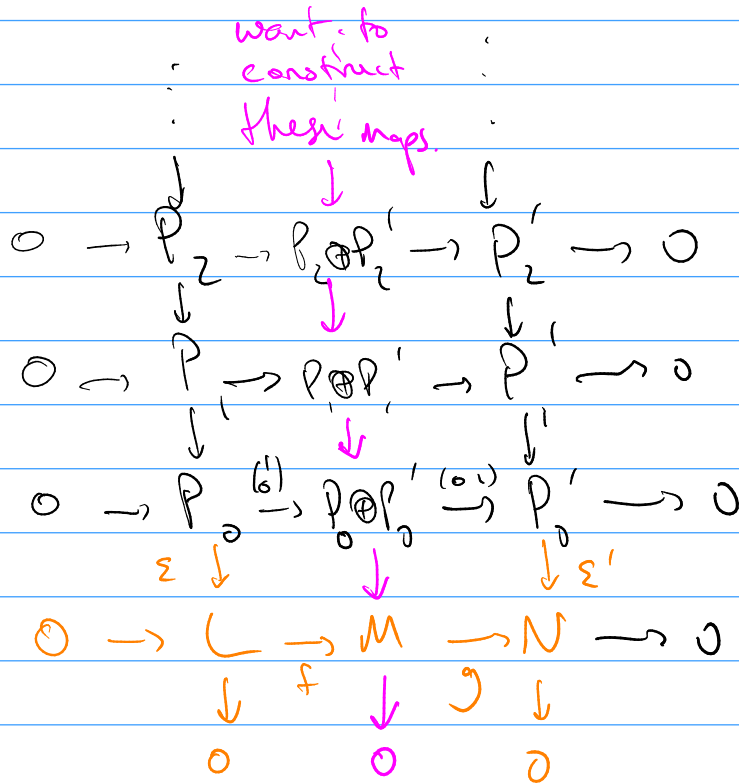 want to
construct
these maps.
0 → P₂ → P₂⊕P₂′ → P₂′ → 0
0 → P₁ → P₁⊕P₁′ → P₁′ → 0
0 → P₀ (1 0) → P₀⊕P₀′ (0 1) → P₀′ → 0
ε ε′
0 → L → M → N → 0
f g
0 0 0